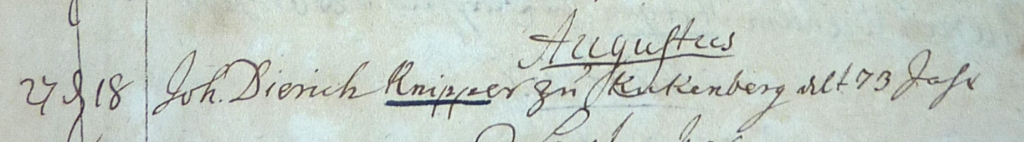 Augustus
27 d 18 Joh. Dierich Knipper zu Kukenberg alt 73 Jahr